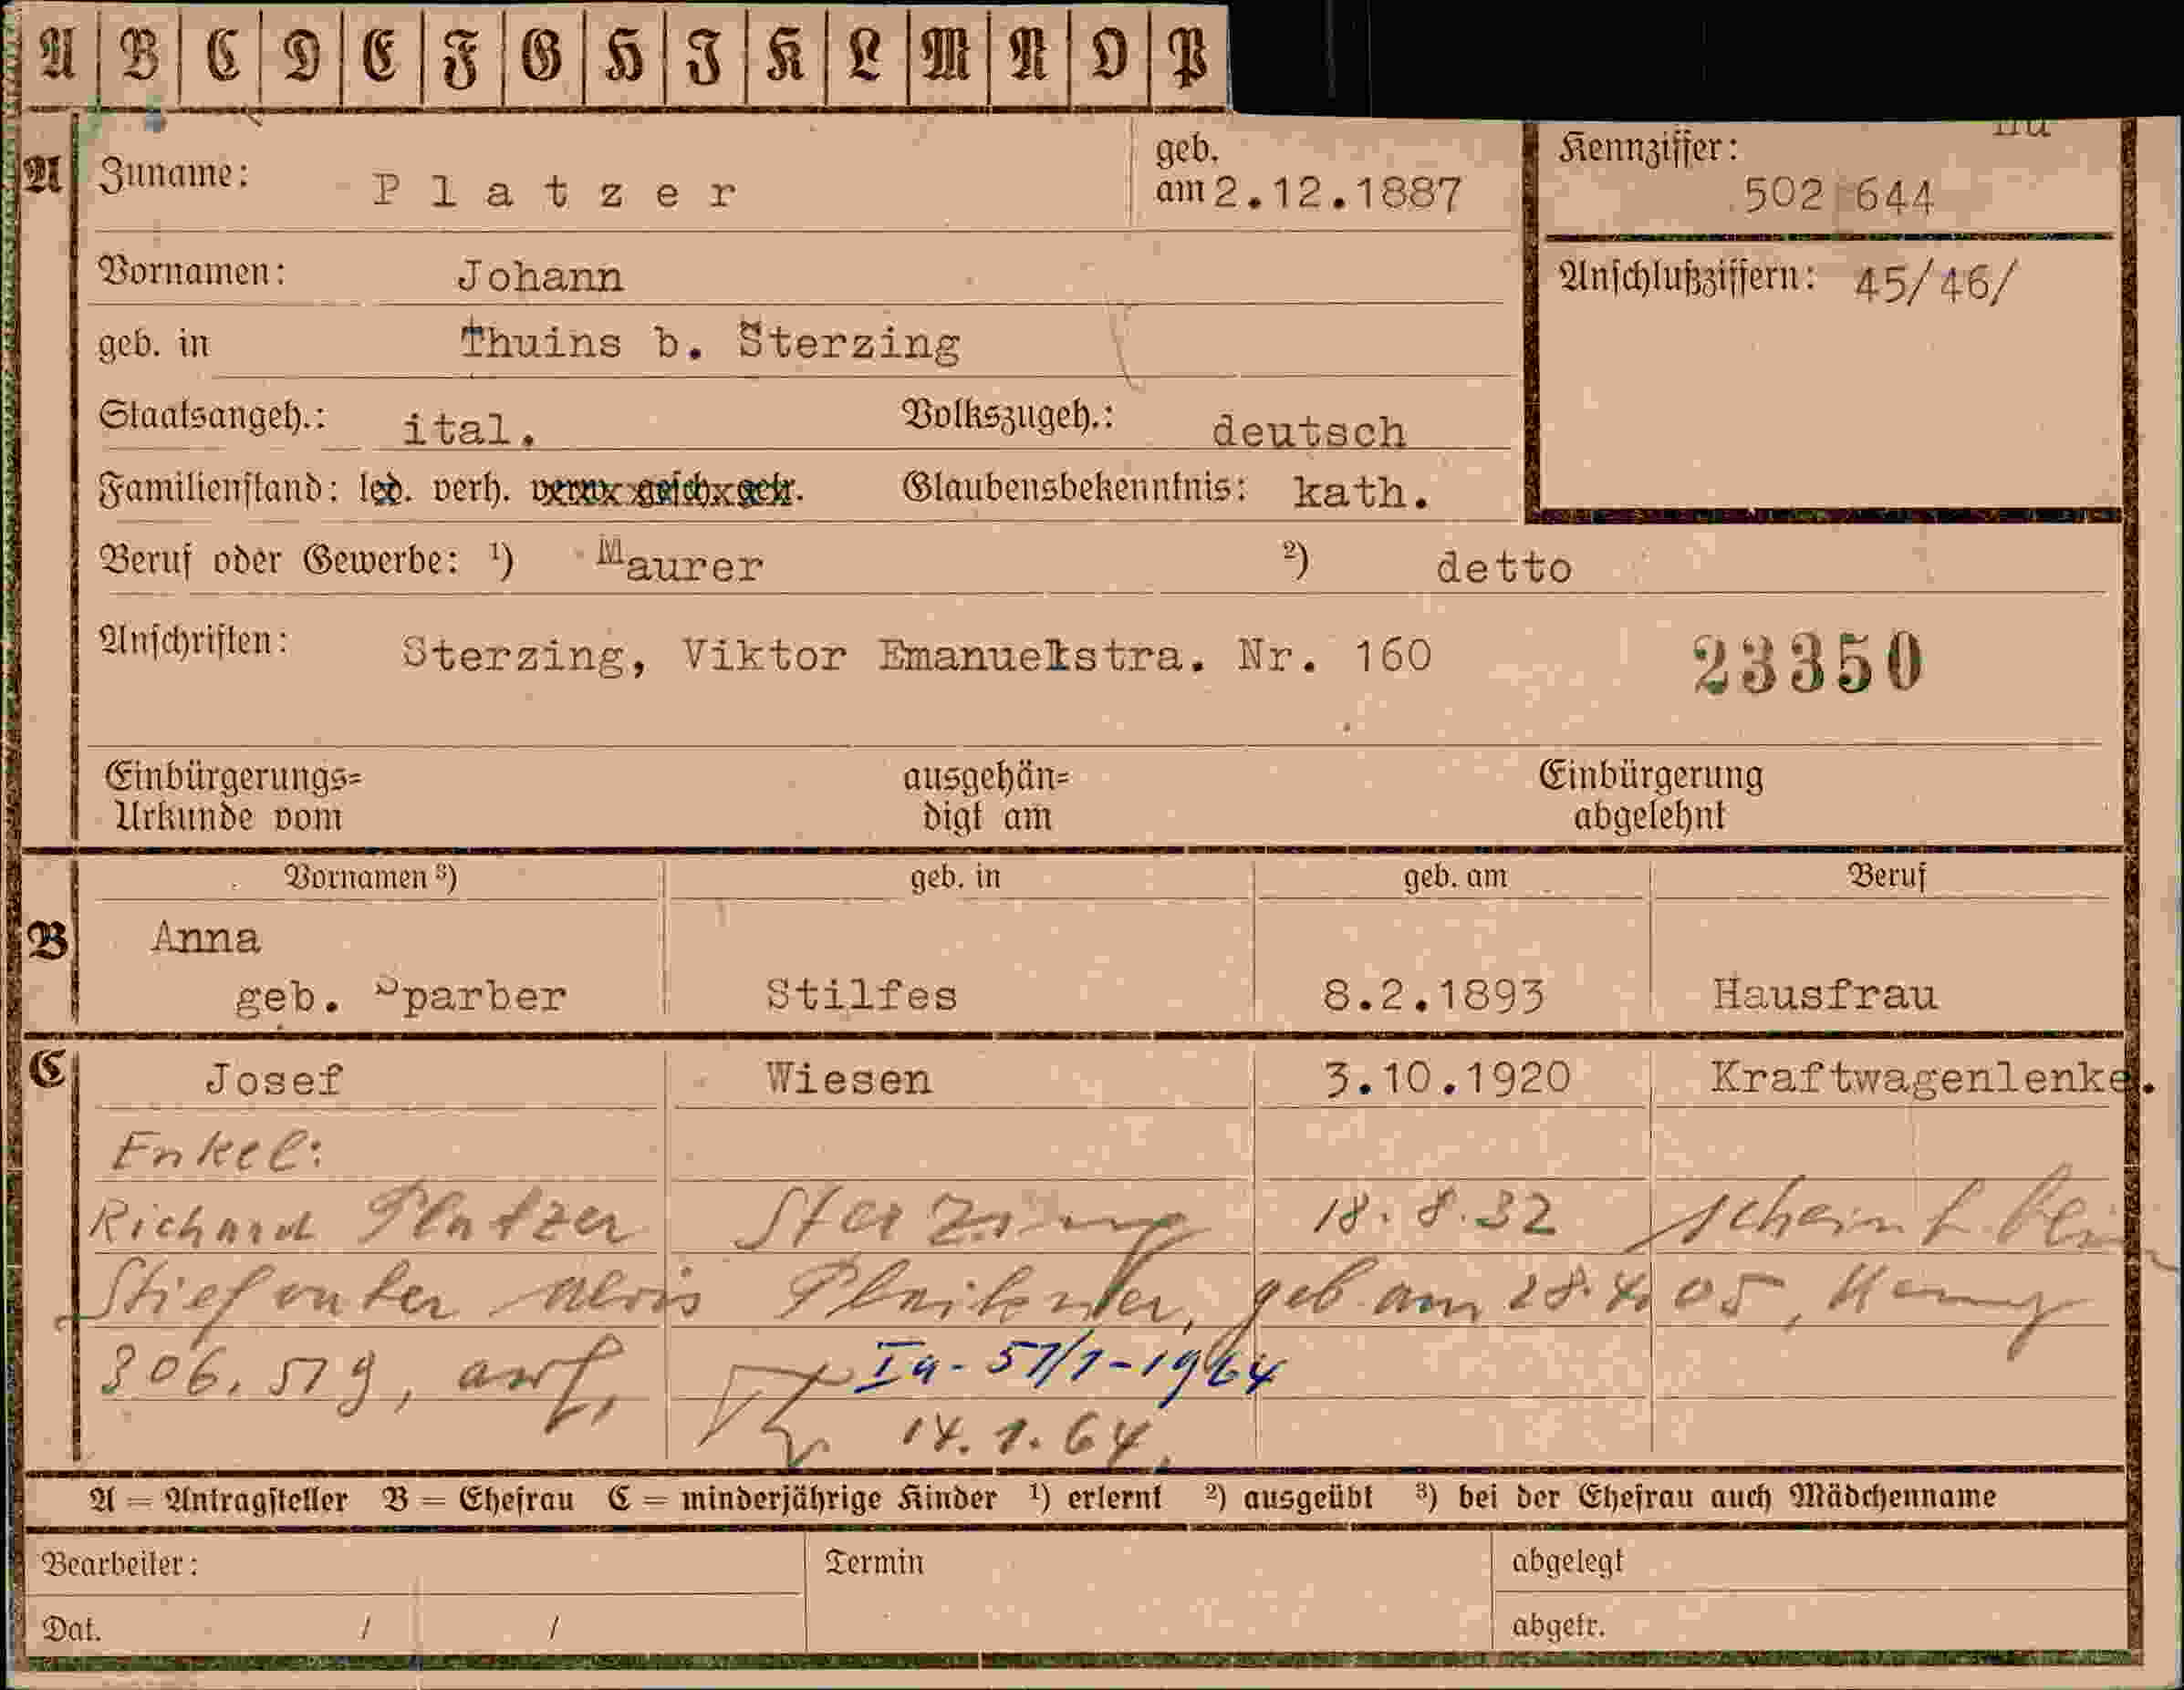 A B C D E F G H I K L M N O P
A Zuname: Platzer geb. am 2.12.1887 Kennziffer: 502 644
Vornamen: Johann Anschlußziffern: 45/46/
geb. in Thuins b. Sterzing
Staatsangeh.: ital. Volkszugeh.: deutsch
Familienstand: led. verh. verw. gesch. getr. Glaubensbekenntnis: kath.
Beruf oder Gewerbe: ¹) Maurer ²) detto
Anschriften: Sterzing, Viktor Emanuelstra. Nr. 160 23350
Einbürgerungs= ausgehän= Einbürgerung
Urkunde vom digt am abgelehnt
Vornamen ³) geb. in geb. am Beruf
B Anna
geb. Sparber Stilfes 8.2.1893 Hausfrau
C Josef Wiesen 3.10.1920 Kraftwagenlenke.
Enkel:
Richard Platzer Sterzing 18.8.32 scheint bei
Stiefvater Alois geb am 28.4.05,
306.519, auf,
Ia-51/1-1964
14.1.64.
A = Antragsteller B = Ehefrau C = minderjährige Kinder ¹) erlernt ²) ausgeübt ³) bei der Ehefrau auch Mädchenname
Bearbeiter: Termin abgelegt
Dat. / / abgetr.